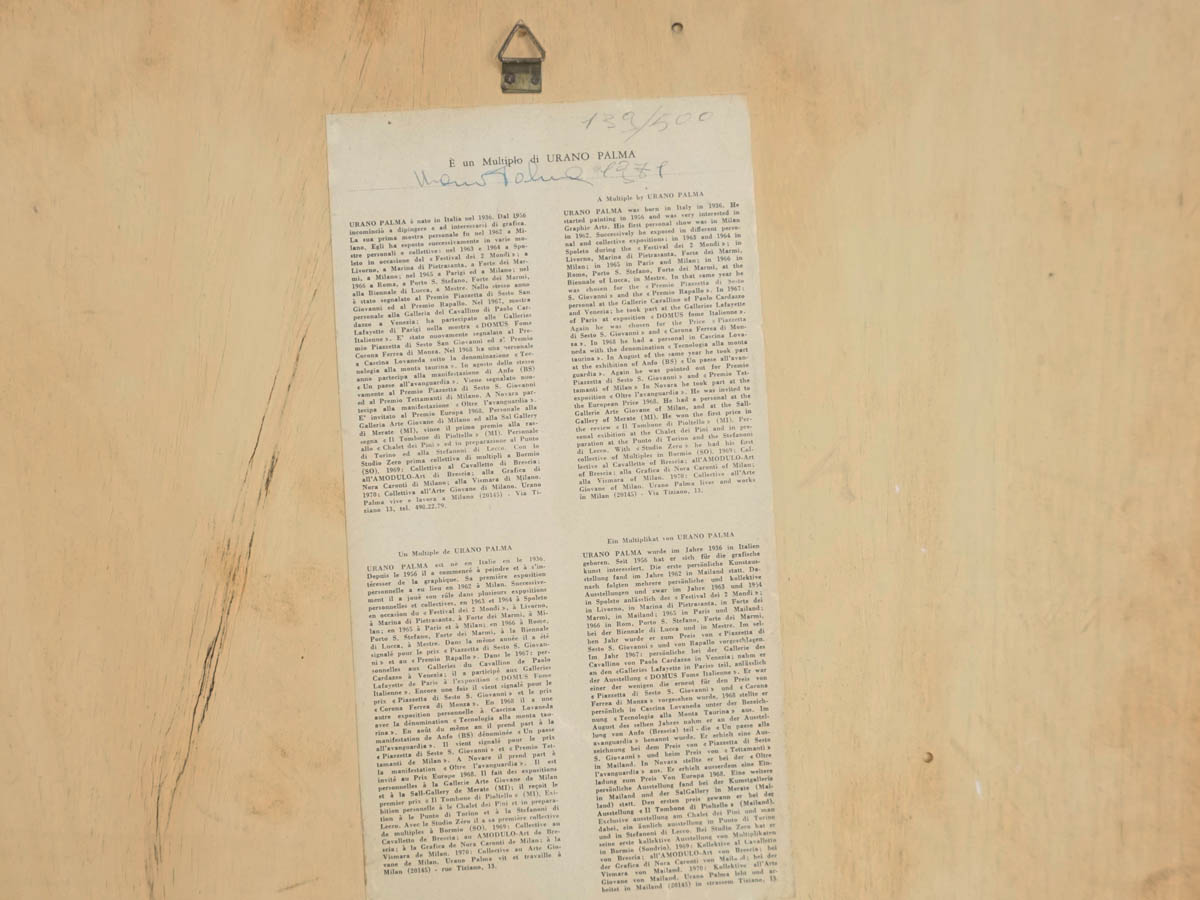 139/500
È un Multiplo di URANO PALMA
Urano Palma 1971
URANO PALMA è nato in Italia nel 1936. Dal 1956
incominciò a dipingere e ad interessarsi di grafica.
La sua prima mostra personale fu nel 1962 a Mi-
lano. Egli ha esposto successivamente in varie mo-
stre personali e collettive: nel 1963 e 1964 a Spo-
leto in occasione del « Festival dei 2 Mondi »; a
Livorno, a Marina di Pietrasanta, a Forte dei Mar-
mi, a Milano; nel 1965 a Parigi ed a Milano; nel
1966 a Roma, a Porto S. Stefano, Forte dei Marmi,
alla Biennale di Lucca, a Mestre. Nello stesso anno
è stato segnalato al Premio Piazzetta di Sesto San
Giovanni ed al Premio Rapallo. Nel 1967, mostra
personale alla Galleria del Cavallino di Paolo Car-
dazzo a Venezia; ha partecipato alle Galleries
Lafayette di Parigi nella mostra « DOMUS Fome
Italienne ». E' stato nuovamente segnalato al Pre-
mio Piazzetta di Sesto San Giovanni ed al Premio
Corona Ferrea di Monza. Nel 1968 ha una personale
a Cascina Lovaneda sotto la denominazione « Tec-
nologia alla monta taurina ». In agosto dello stesso
anno partecipa alla manifestazione di Anfo (BS)
« Un paese all'avanguardia ». Viene segnalato nuo-
vamente al Premio Piazzetta di Sesto S. Giovanni
ed al Premio Tettamanti di Milano. A Novara par-
tecipa alla manifestazione « Oltre l'avanguardia ».
E' invitato al Premio Europa 1968. Personale alla
Galleria Arte Giovane di Milano ed alla Sal Gallery
di Merate (MI), vince il primo premio alla ras-
segna « Il Tombone di Pioltello » (MI). Personale
allo « Chalet dei Pini » ed in preparazione al Punto
di Torino ed alla Stefanoni di Lecco. Con lo
Studio Zero prima collettiva di multipli a Bormio
(SO). 1969: Collettiva al Cavalletto di Brescia;
all'AMODULO-Art di Brescia; alla Grafica di
Nora Caronti di Milano; alla Vismara di Milano.
1970: Collettiva all'Arte Giovane di Milano. Urano
Palma vive e lavora a Milano (20145) - Via Ti-
ziano 13, tel. 490.22.79.
A Multiple by URANO PALMA
URANO PALMA was born in Italy in 1936. He
started painting in 1956 and was very interested in
Graphic Arts. His first personal show was in Milan
in 1962. Successively he exposed in different perso-
nal and collective expositions: in 1963 and 1964 in
Spoleto during the « Festival dei 2 Mondi »; in
Livorno, Marina di Pietrasanta, Forte dei Marmi,
Milan; in 1965 in Paris and Milan; in 1966 in
Rome, Porto S. Stefano, Forte dei Marmi, at the
Biennale of Lucca, in Mestre. In that same year he
was chosen for the « Premio Piazzetta di Sesto
S. Giovanni » and the « Premio Rapallo ». In 1967:
personal at the Gallerie Cavallino of Paolo Cardazzo
and Venezia; he took part at the Galleries Lafayette
of Paris at exposition « DOMUS fome Italienne ».
Again he was chosen for the Price « Piazzetta
di Sesto S. Giovanni » and « Corona Ferrea di Mon-
za ». In 1968 he had a personal in Cascina Lova-
neda with the denomination « Tecnologia alla monta
taurina ». In August of the same year he took part
at the exhibition of Anfo (BS) « Un paese all'avan-
guardia ». Again he was pointed out for Premio
Piazzetta di Sesto S. Giovanni » and « Premio Tet-
tamanti of Milan » In Novara he took part at the
exposition « Oltre l'avanguardia ». He was invited to
the European Price 1968. He had a personal at the
Gallerie Arte Giovane of Milan, and at the Sall-
Gallery of Merate (MI). He won the first price in
the review « Il Tombone di Pioltello » (MI). Per-
sonal exibition at the Chalet dei Pini and in pre-
paration at the Punto di Torino and the Stefanoni
di Lecco. With « Studio Zero » he had his first
collective of Multiples in Bormio (SO). 1969: Col-
lective al Cavalletto of Brescia; all'AMODULO-Art
of Brescia; alla Grafica di Nora Caronti of Milan;
alla Vismara of Milan. 1970: Collective all'Arte
Giovane of Milan. Urano Palma lives and works
in Milan (20145) - Via Tiziano, 13.
Un Multiple de URANO PALMA
URANO PALMA est né en Italie en le 1936.
Depuis le 1956 il a commencé à peindre et à s'in-
téresser de la graphique. Sa première exposition
personnelle a eu lieu en 1962 à Milan. Successive-
ment il a joué son rôle dans plusieurs expositions
personnelles et collectives, en 1963 et 1964 à Spoleto
en occasion du « Festival dei 2 Mondi », à Livorno,
à Marina di Pietrasanta, à Forte dei Marmi, à Mi-
lan; en 1965 à Paris et à Milan; en 1966 a Rome,
Porto S. Stefano, Forte dei Marmi, à la Biennale
di Lucca, à Mestre. Dans la même année il a été
signalé pour le prix « Piazzetta di Sesto S. Giovan-
ni » et au « Premio Rapallo ». Dans le 1967: per-
sonnelles aux Galleries du Cavallino de Paolo
Cardazzo à Venezia; il a participé aux Galleries
Lafayette de Paris à l'exposition « DOMUS Fome
Italienne ». Encore une fois il vient signalé pour le
prix « Piazzetta di Sesto S. Giovanni » et le prix
« Corona Ferrea di Monza ». En 1968 il a une
autre exposition personnelle à Cascina Lovaneda
avec la dénomination « Tecnologia alla monta tau-
rina ». En août du même an il prend part à la
manifestation de Anfo (BS) dénominée « Un paese
all'avanguardia ». Il vient signalé pour le prix
« Piazzetta di Sesto S. Giovanni » et « Premio Tet-
tamanti de Milan ». A Novare il prend part à
la manifestation « Oltre l'avanguardia ». Il est
invité au Prix Europe 1968. Il fait des expositions
personnelles à la Gallerie Arte Giovane de Milan
et à la Sall-Gallery de Merate (MI); il reçoit le
premier prix « Il Tombone di Pioltello » (MI). Exi-
bition personelle à le Chalet dei Pini et in prepara-
tion à le Punto di Torino et à la Stefanoni di
Lecco. Avec le Studio Zéro il a sa première collective
de multiples à Bormio (SO). 1969: Collective au
Cavalletto de Brescia; au AMODULO-Art de Bre-
scia; à la Grafica de Nora Caronti de Milan; à la
Vismara de Milan. 1970: Collective au Arte Gio-
vane de Milan. Urano Palma vit et travaille à
Milan (20145) - rue Tiziano, 13.
Ein Multiplikat von URANO PALMA
URANO PALMA wurde im Jahre 1936 in Italien
geboren. Seit 1956 hat er sich für die grafische
kunst interessiert. Die erste persönliche Kunstaus-
stellung fand im Jahre 1962 in Mailand statt. Da-
nach folgten mehrere persönliche und kollektive
Ausstellungen und zwar im Jahre 1963 und 1954
in Spoleto anlässlich des « Festival dei 2 Mondi »;
in Livorno, in Marina di Pietrasanta, in Forte dei
Marmi, in Mailand; 1965 in Paris und Mailand;
1966 in Rom, Porto S. Stefano, Forte dei Marmi,
bei der Biennale di Lucca und in Mestre. Im sel-
ben Jahr wurde er zum Preis von « Piazzetta di
Sesto S. Giovanni » und von Rapallo vorgeschlagen.
Im Jahr 1967: persönliche bei der Gallerie des
Cavallino von Paola Cardazza in Venezia; nahm er
an den «Galleries Lafayette in Paris» teil, anlässlich
der Ausstellung « DOMUS Fome Italienne ». Er war
einer der wenigen die erneut für den Preis von
« Piazzetta di Sesto S. Giovanni » und « Corona
Ferrea di Monza » vorgesehen wurde, 1968 stellte er
persönlich in Cascina Lovaneda unter der Bezeich-
nung « Tecnologia alla Monta Taurina » aus. Im
August des selben Jahres nahm er an der Ausstel-
lung von Anfo (Brescia) teil - die « Un paese alla
avanguardia » benannt wurde. Er erhielt eine Aus-
zeichnung bei dem Preis von « Piazzetta di Sesto
S. Giovanni » und beim Preis von « Tettamanti »
in Mailand. In Novara stellte er bei der « Oltre
l'avanguardia » aus. Er erhielt ausserdem eine Ein-
ladung zum Preis Von Europa 1968. Eine weitere
persönliche Ausstellung fand bei der Kunstgalleria
in Mailand und der SalGallery in Merate (Mai-
land) statt. Den ersten preis gewann er bei der
Ausstellung « Il Tombone di Pioltello » (Mailand).
Exclusive ausstellung am Chalet dei Pini und man
dabei, ein änlich ausstellung in Punto di Torino
und in Stefanoni di Lecco. Bei Studio Zero hat er
seine erste kollektive Ausstellung von Multiplikaten
in Bormio (Sondrio). 1969: Kollektive al Cavalletto
von Brescia; all'AMODULO-Art von Brescia; bei
der Grafica di Nora Caronti von Mailand; bei der
Vismara von Mailand. 1970: Kollektive all'Arte
Giovane von Mailand. Urana Palma lebt und ar-
beitet in Mailand (20145) in strassem Tiziano, 13.